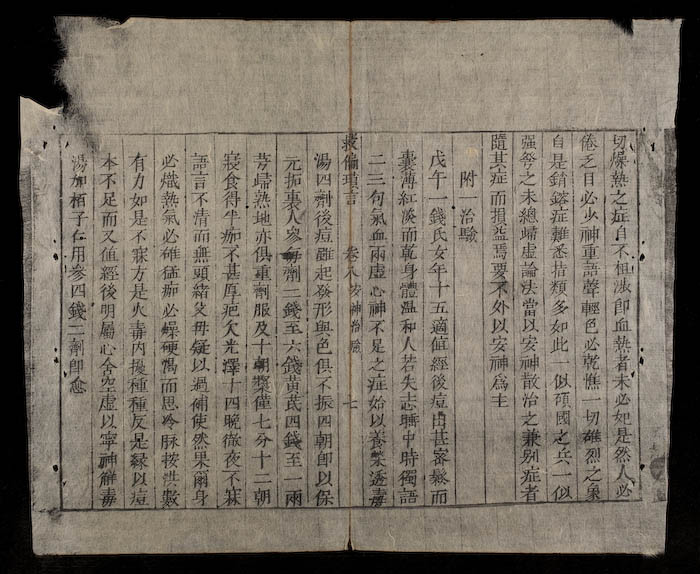 切燥熱之症自不相涉即血熱者未必如是然人必
倦乏目必少神重語聲輕色必乾憔一切雄烈之象
自是銷鎔症難悉拮類多如此一似碩國之兵一似
强弩之末總歸虛論法當以安神散治之兼别症者
隨其症而損益焉要不外以安神為主
附一治驗
戊午一錢氏女年十五適值經後痘出甚密鬆而
囊薄紅淡而乾身體温和人若失志睡中時獨語
二三句氣血兩虛心神不足之症始以養榮透毒
救偏瑣言 卷八安神治驗 七
湯四劑後痘雖起發形與色俱不振四朝即以保
元拓裏人參每劑二錢至六錢黄芪四錢至一兩
芎歸熟地亦俱重劑服及十朝漿僅七分十二朝
寢食得半痂不甚厚疤欠光澤十四晚徹夜不寐
語言不清而無頭緒父母疑以過補使然果爾身
必熾熱氣必雄猛痂必燥硬渴而思冷脉按洪數
有力如是不寐方是火毒内擾種種反是緣以痘
本不足而又值經後明屬心舍空虛以寧神解毒
湯加栢子仁用參四錢二劑即愈